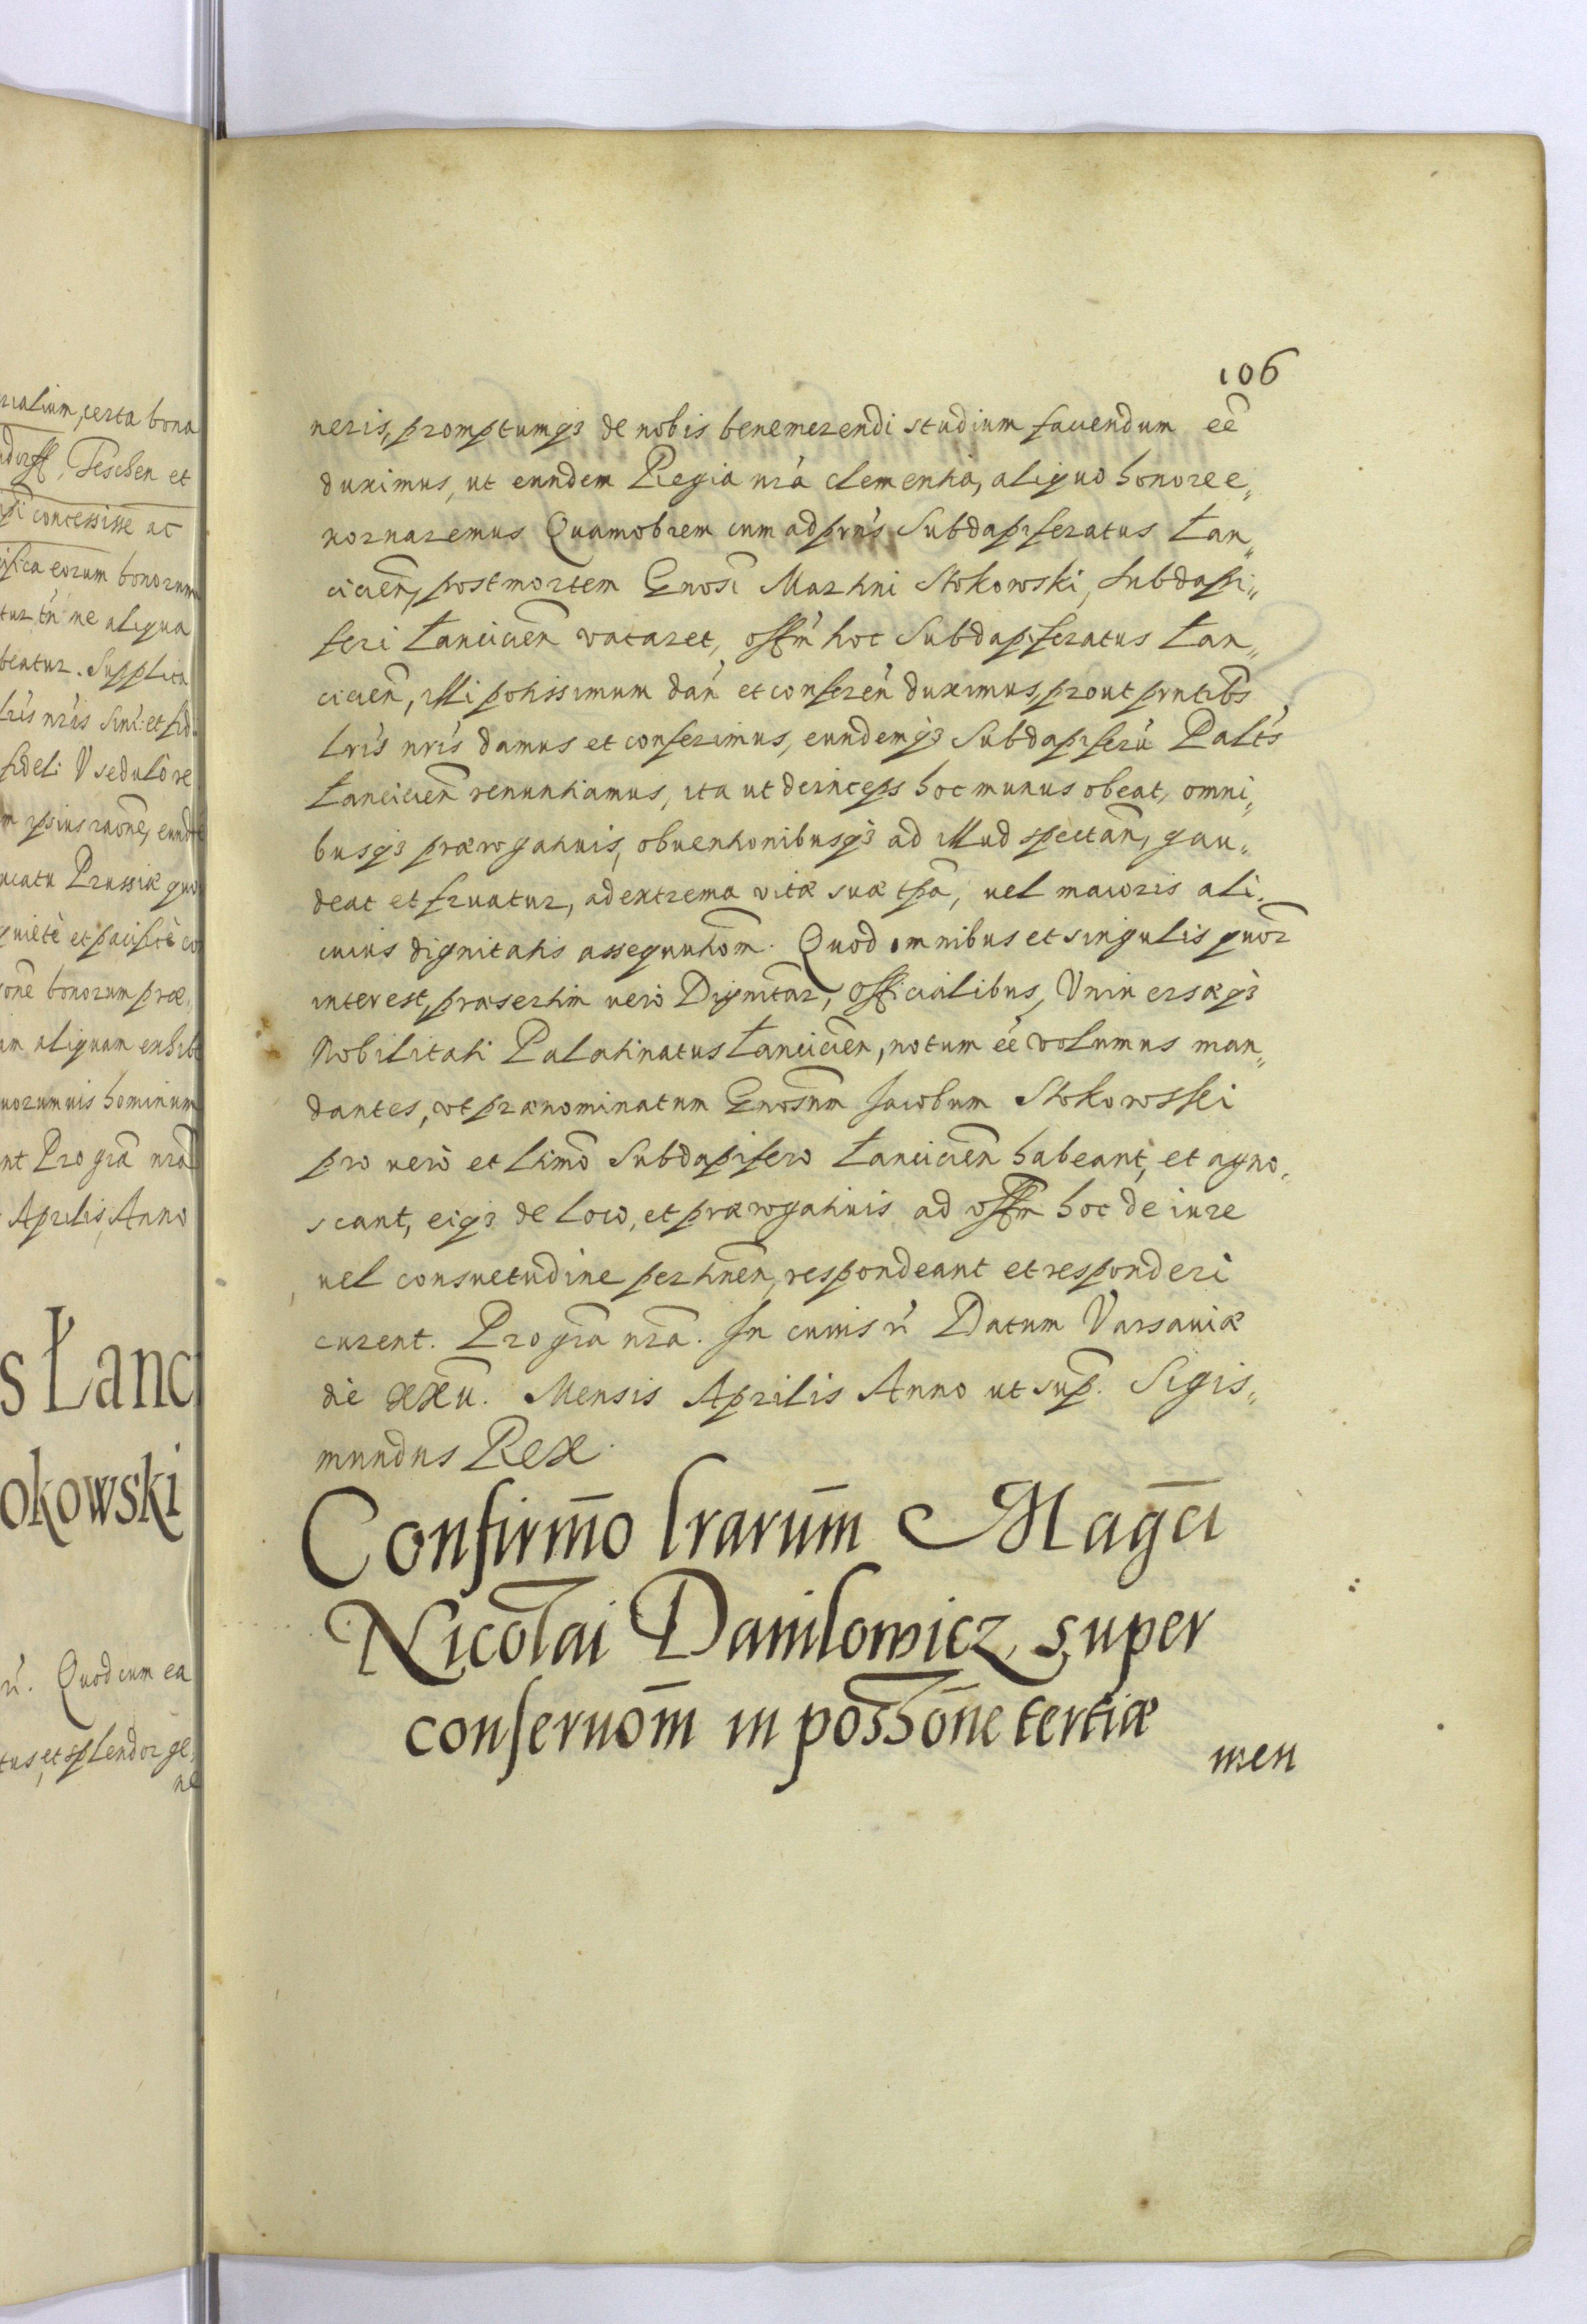 106
neris, promptumq3 de nobis benemerendi studium fauendum eē
duximus, ut eundem Regia nrã clementia, aliquo honore e„
xornaremus Quamobrem cum ad prns Subdapiferatus Łan„
cicien, post mortem Gnosi Martini Stokowski, Subdapi„
feri Łancicien vacaret, offm hoc Subdapiferatus Łan„
cicien, illi potissimum dan et conferen duximus, prout prntibs
lris nris damus et conferimus, eundemq3 Subdapiferu Palts
Łancicien renuntiamus, ita ut deinceps hoc munus obeat, omni„
busq3 prærogatiuis, obuentionibusq3 ad illud spectan, gau„
deat et fruatur, ad extrema vitæ suæ tpa, uel maioris ali„
cuius dignitatis assequutiom. Quod omnibus et singulis quor
interest, præsertim uero Dignitar, Officialibus, Vniuersæq3
Nobilitati Palatinatus Łancicien, notum eē volumus man„
dantes, vt prænominatum Gnosum Jacobum Stokowski
pro uero et ltimo Subdapifero Łancicien habeant, et agno„
scant, eiq3 de loco, et prærogatiuis ad offm hoc de iure
uel consuetudine pertinen, respondeant et responderi
curent. Pro gra nra. In cuius r̃ Datum Varsauiæ
die xxii. Mensis Aprilis Anno ut sup. Sigis„
mundus Rex.
Confirmo lrarum Magci
Nicolai Danilowicz, super
conseruom in possone tertiæ
men
rcalium, certa bona
ndorff, Teschen et
concessisse ac
eorum bonorum
tur tn ne aliqua
beatur. Supplica
lris nris Sini: et fid:
fideli V sedulo re
m ipsius raone, eund
ucatu Prussiæ quo
quiete et pacifice co
one bonorum præ„
am aliquam exhibe
uorumuis hominum
nt Pro gra nra
Aprilis, Anno
s Łanc
okowski
r̃. Quod cum ea
tus, et splendor ge„
ne